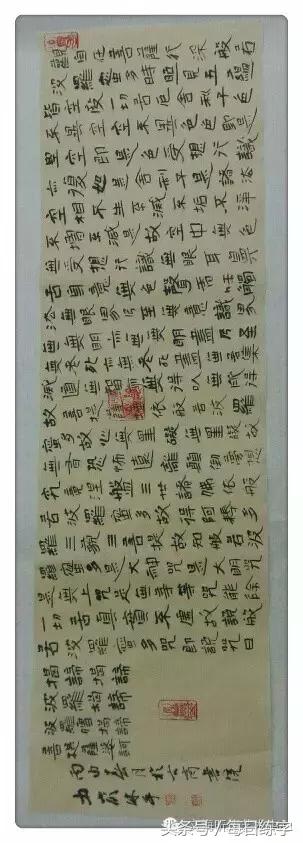 觀自在菩薩行深般若
波羅蜜多時照見五蘊
皆空度一切苦厄舍利子色
不異空空不異色色即是
空空即是色受想行識
亦復如是舍利子是諸法
空相不生不滅不垢不淨
不增不減是故空中無色
無受想行識無眼耳鼻
舌身意無色聲香味觸
法無眼界乃至無意識界
無無明亦無無明盡乃至
無老死亦無老死盡無苦集
滅道無智亦無得以無所得
故菩提薩埵依般若波羅
蜜多故心無罣礙無罣礙故
無有恐怖遠離顛倒夢想
究竟涅槃三世諸佛依般
若波羅蜜多故得阿耨多
羅三藐三菩提故知般若波
羅蜜多是大神咒是大明咒
是無上咒是無等等咒能除
一切苦真實不虛故說般
若波羅蜜多咒即說咒曰
揭諦揭諦
波羅揭諦
波羅僧揭諦
菩提薩婆訶
丙申
头条号/每日练字